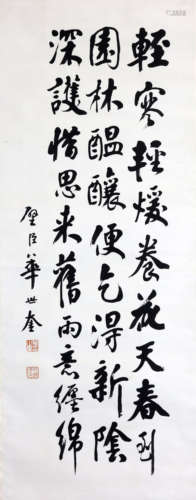 輕寒輕煖養花天春到
園林醞釀便乞得新陰
深護惜思来舊雨意纏綿
壁臣華世奎